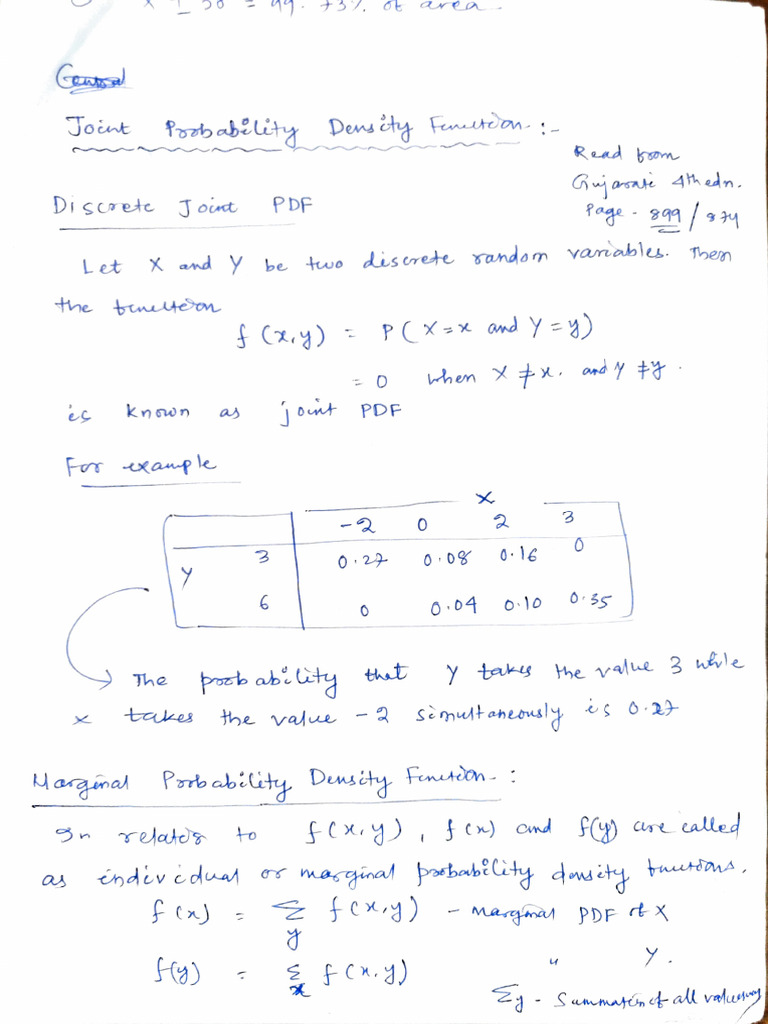 x ± 3σ = 99.73% of area.
Joint Probability Density Function :-
Read from
Gujarati 4th edn.
Page - 899 / 874
Discrete Joint PDF
Let X and Y be two discrete random variables. Then
the function
f (x,y) = P ( X = x and Y = y)
= 0 when X ≠ x, and Y ≠ y .
is known as joint PDF
For example
X
-2 0 2 3
Y 3 0.27 0.08 0.16 0
6 0 0.04 0.10 0.35
The probability that Y takes the value 3 while
x takes the value -2 simultaneously is 0.27
Marginal Probability Density Function - :
In relation to f(x,y), f(x) and f(y) are called
as individual or marginal probability density functions.
f (x) = Σ f(x,y) - marginal PDF of X
y
f(y) = Σ f(x,y) " Y.
x
Σy - Summation of all values